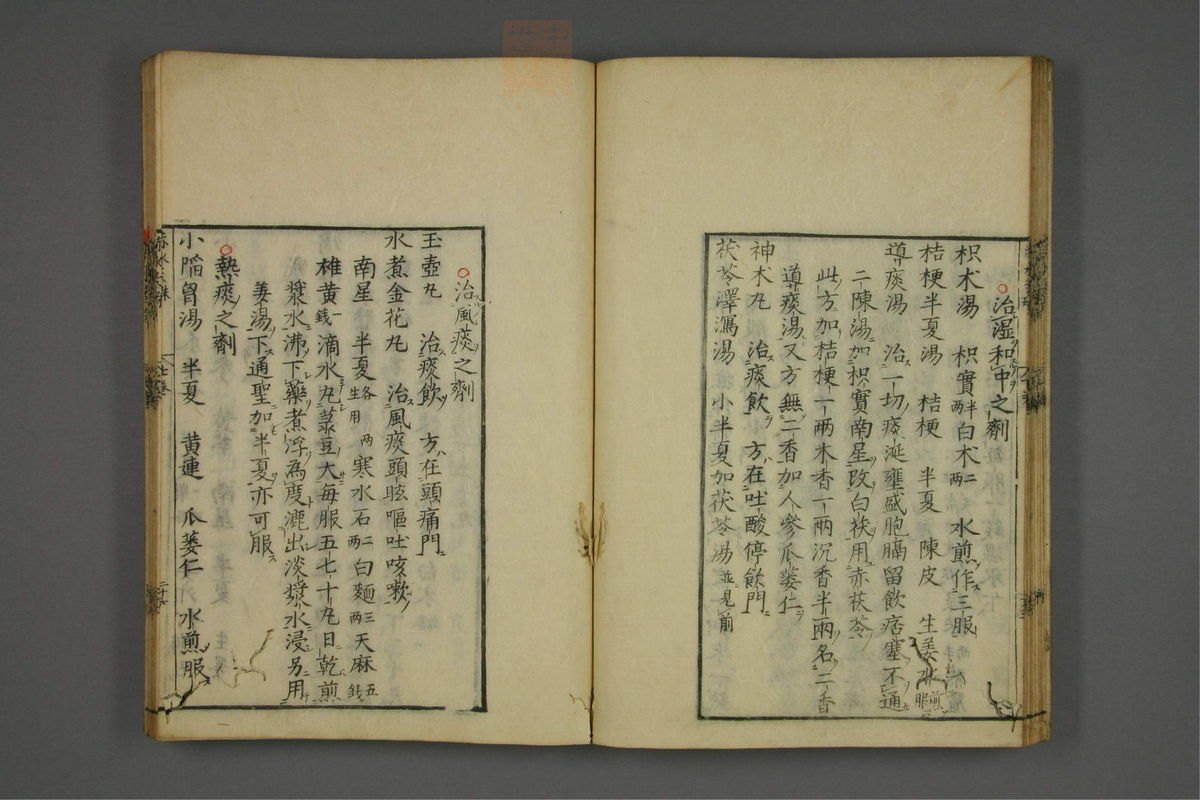 ○治湿和中之劑
枳朮湯　枳實半兩 白朮二兩　水煎作三服
桔梗半夏湯　桔梗　半夏　陳皮　生姜水煎服
導痰湯　治一切痰涎壅盛胞膈留飲痞塞不通
二陳湯加枳實南星改白茯用赤茯苓
此方加桔梗一兩木香一兩沉香半兩名二香
導痰湯又方無二香加人參瓜蔞仁
神朮丸　治痰飲　方在吐酸停飲門
茯苓澤瀉湯　小半夏加茯苓湯並見前
○治風痰之劑
玉壺丸　治痰飲　方在頭痛門
水煮金花丸　治風痰頭眩嘔吐咳嗽
南星　半夏各生用兩 寒水石二兩 白麵三兩 天麻五錢
椎黄一錢 滴水丸菉豆大每服五七十丸日乾煎
漿水沸下藥煮浮為度漉出淡漿水浸另用
姜湯下通聖加半夏亦可服
○熱痰之劑
小陷胷湯　半夏　黄連　瓜蔞仁　水煎服